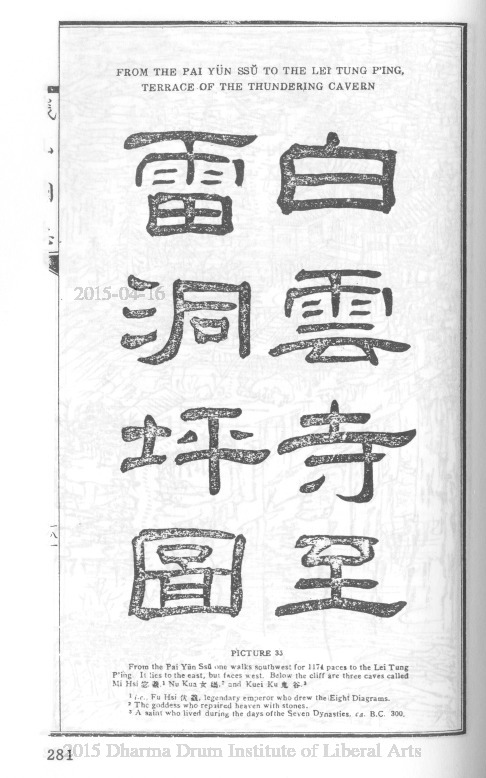 FROM THE PAI YÜN SSŬ TO THE LEI TUNG P'ING,
TERRACE OF THE THUNDERING CAVERN
白雲寺至
雷洞坪圖
2015-04-16
PICTURE 33
From the Pai Yün Ssŭ one walks southwest for 1174 paces to the Lei Tung
P'ing. It lies to the east, but faces west. Below the cliff are three caves called
Mi Hsi 宓羲,¹ Nu Kua 女媧,² and Kuei Ku 鬼谷.³
¹ i.e., Fu Hsi 伏羲, legendary emperor who drew the Eight Diagrams.
² The goddess who repaired heaven with stones.
³ A saint who lived during the days of the Seven Dynasties, ca. B.C. 300.
284
2015 Dharma Drum Institute of Liberal Arts